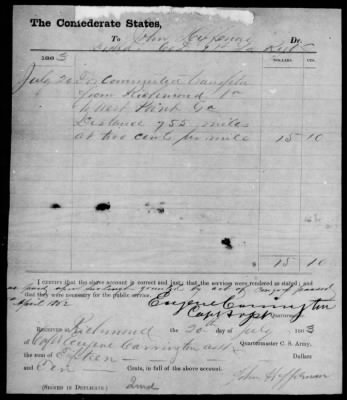 The Confederate States,
To John Dr.
1863 DOLLARS CENTS
July 20 For Commuted
from Richmond Va
to West Point Ga
Distance 755 miles
at two cents per mile 15 10
$ 15 10
I CERTIFY that the above account is correct and just; that the services were rendered as stated; and
that they were necessary for the public service.
granted by act of Congress passed
April 1862
Eugene Carrington
Capt &
Quartermaster.
RECEIVED at Richmond the 20th day of July 1863
of Capt Eugene Carrington asst Quartermaster C. S. Army,
the sum of Fifteen Dollars
and Ten Cents, in full of the above account.
(SIGNED IN DUPLICATE.)
John Heffernan